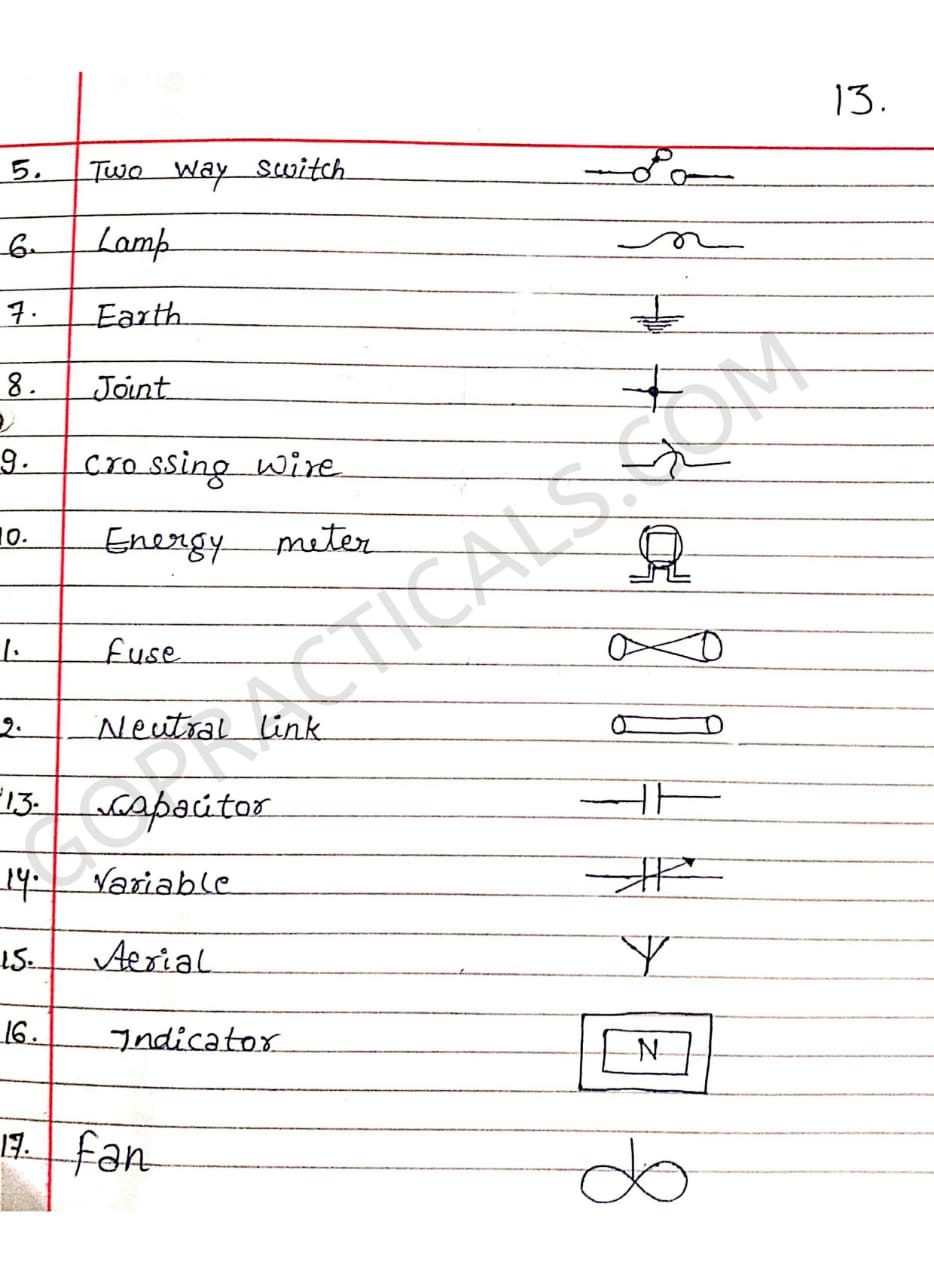 13.
5. Two way switch
6. Lamp
7. Earth
8. Joint
9. crossing wire
10. Energy meter
1. fuse
2. Neutral link
13. Capacitor
14. Variable
15. Aerial
16. Indicator N
17. fan
GOPRACTICALS.COM